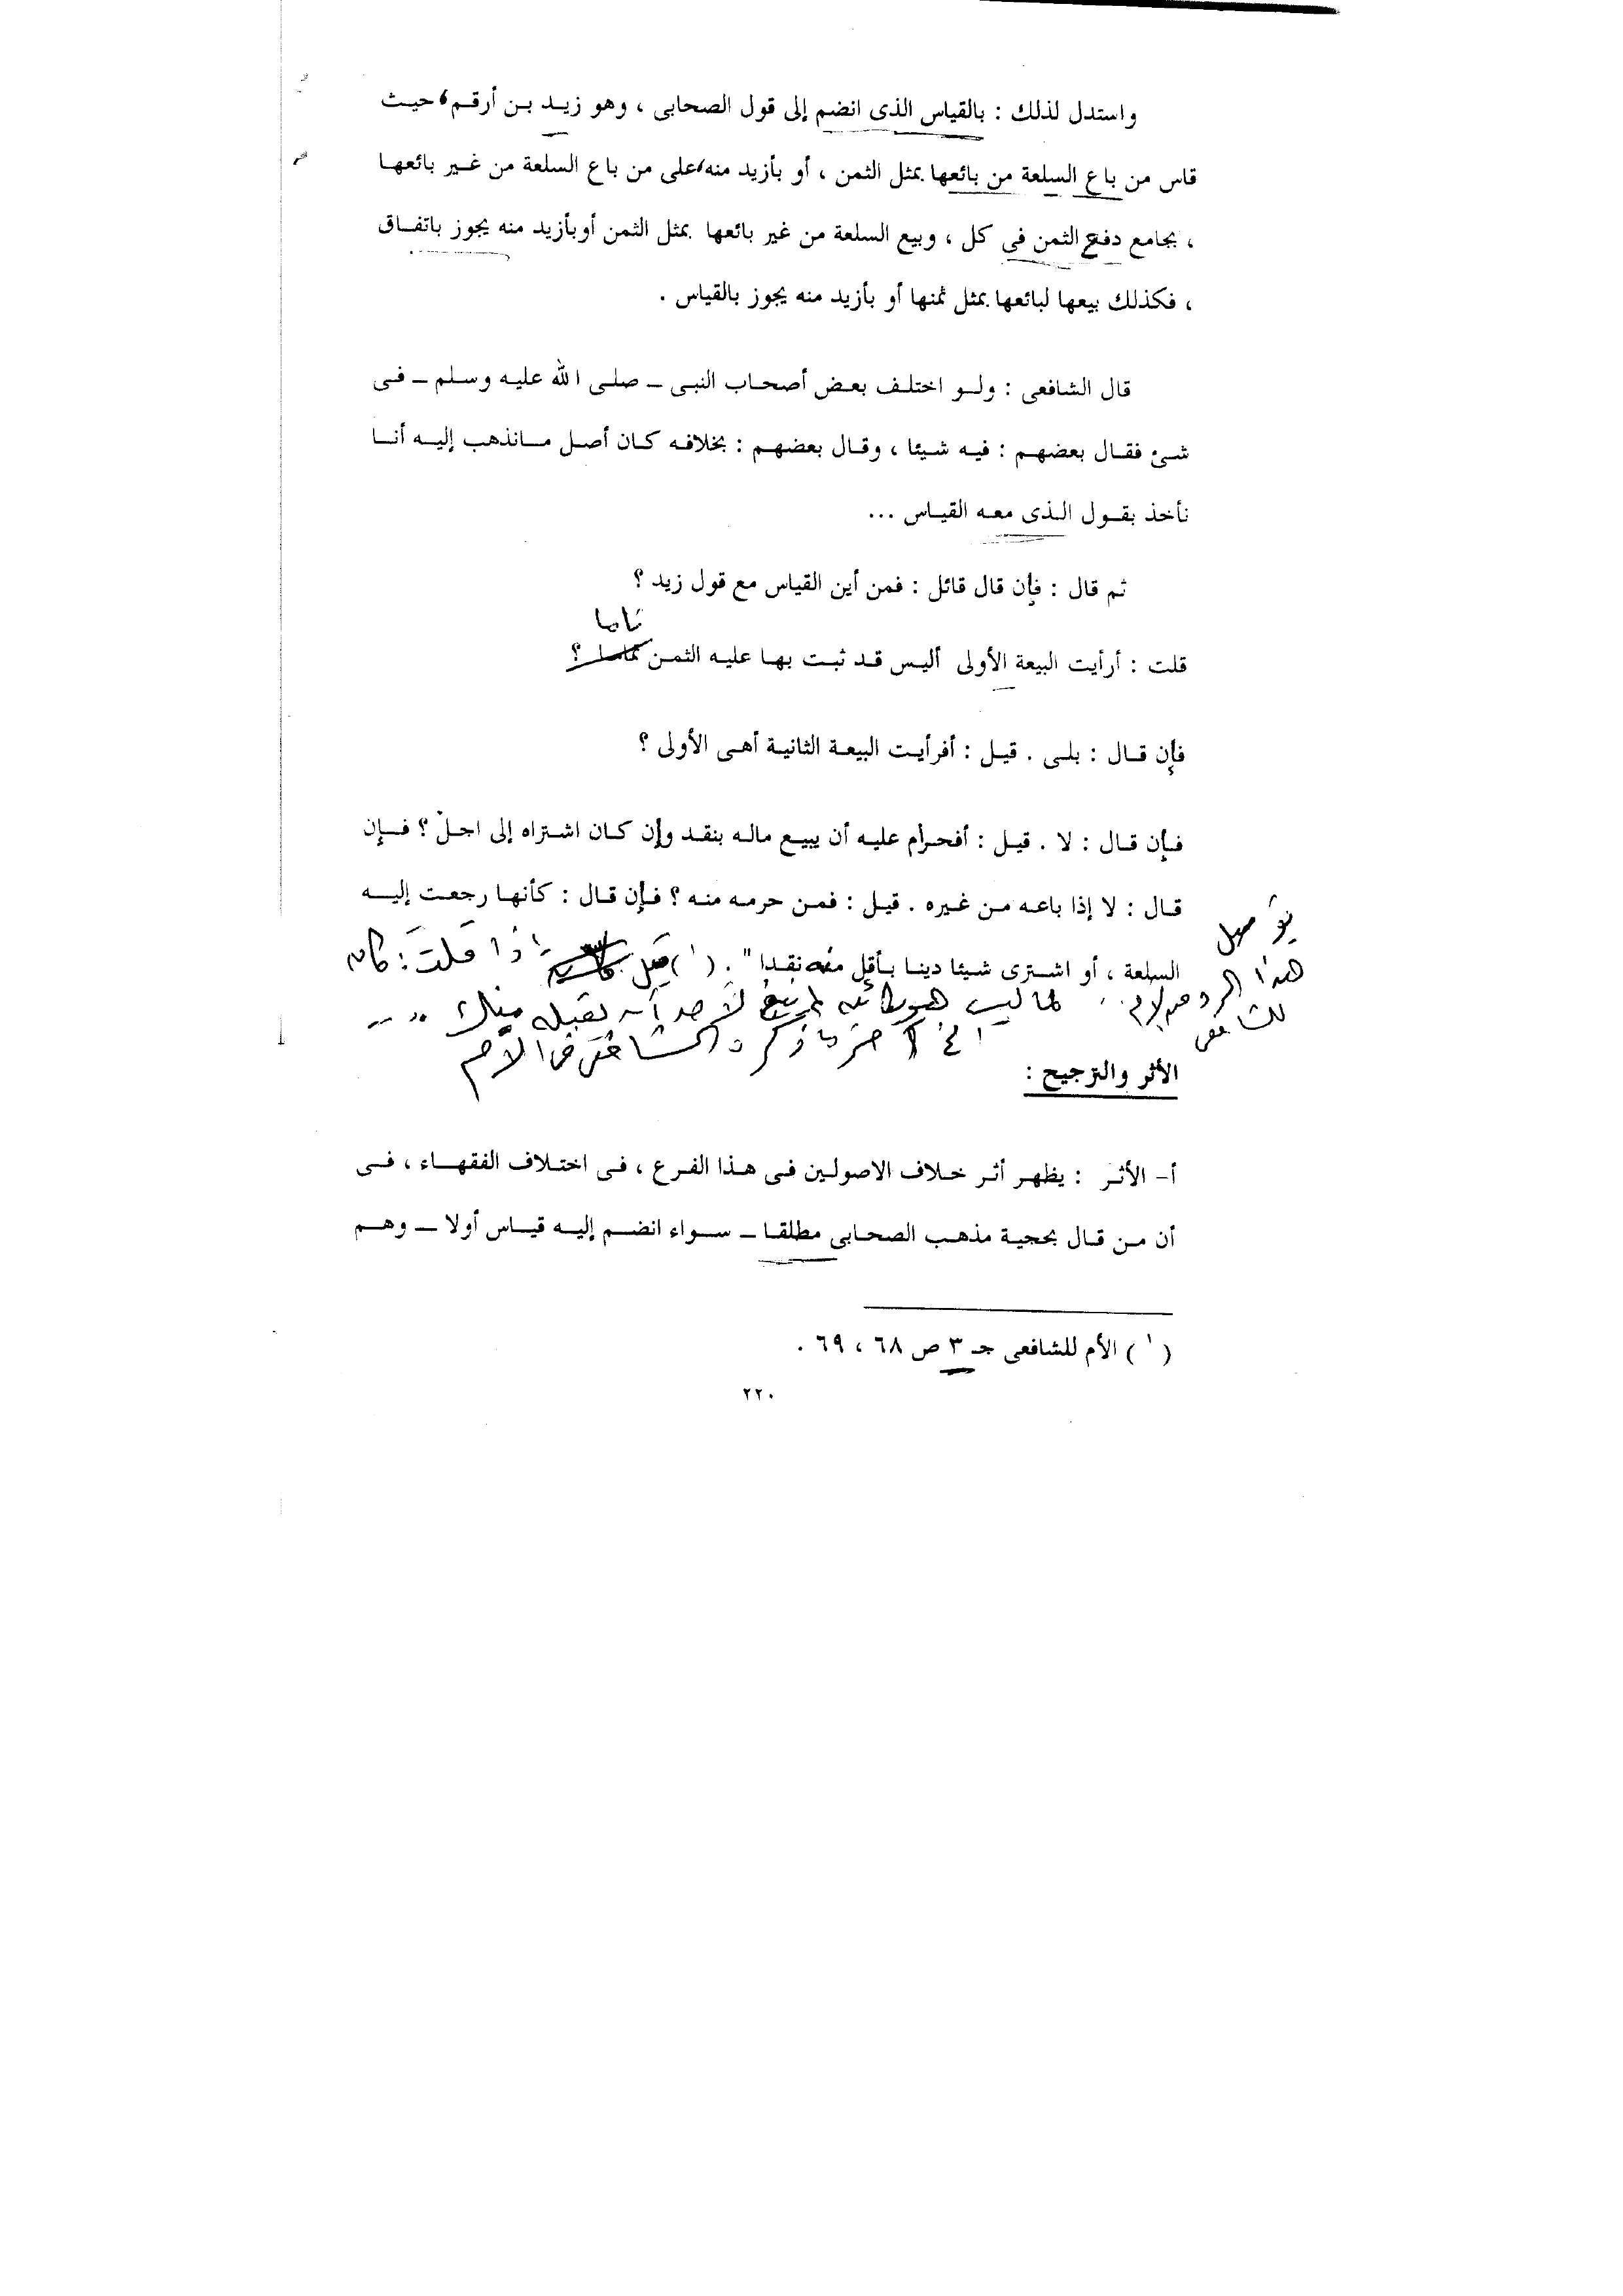 واستدل لذلك : بالقياس الذى انضم إلى قول الصحابى ، وهو زيد بن أرقم، حيث
قاس من باع السلعة من بائعها بمثل الثمن ، أو بأزيد منه، على من باع السلعة من غير بائعها
، بجامع دفع الثمن فى كل ، وبيع السلعة من غير بائعها بمثل الثمن أوبأزيد منه يجوز باتفاق
، فكذلك بيعها لبائعها بمثل ثمنها أو بأزيد منه يجوز بالقياس .
قال الشافعى : ولو اختلف بعض أصحاب النبى ـ صلى الله عليه وسلم ـ فى
شئ فقال بعضهم : فيه شيئا ، وقال بعضهم : بخلافه كان أصل مانذهب إليه أنا
نأخذ بقول الذى معه القياس ...
ثم قال : فإن قال قائل : فمن أين القياس مع قول زيد ؟
تاما
قلت : أرأيت البيعة الأولى أليس قد ثبت بها عليه الثمن ؟
فإن قال : بلى . قيل : أفرأيت البيعة الثانية أهى الأولى ؟
فإن قال : لا . قيل : أفحرام عليه أن يبيع ماله بنقد وإن كان اشتراه إلى اجل ؟ فإن
قال : لا إذا باعه من غيره . قيل : فمن حرمه منه ؟ فإن قال : كأنها رجعت إليه
السلعة ، أو اشترى شيئا دينا بأقل منه نقدا" . (١) قيل إذا قلت : كان
لما ليس هو بكائن لم ينبغ لأحد أن يقبله منك ...
الخ آخر ما ذكره الشافعى فى الأم
هذا الرد من الأم
للشافعى
الأثر والترجيح :
أ- الأثر : يظهر أثر خلاف الاصولين فى هذا الفرع ، فى اختلاف الفقهاء ، فى
أن من قال بحجية مذهب الصحابى مطلقا ـ سواء انضم إليه قياس أولا ـ وهم
(١) الأم للشافعى جـ ٣ ص ٦٨ ، ٦٩ .
٢٢٠